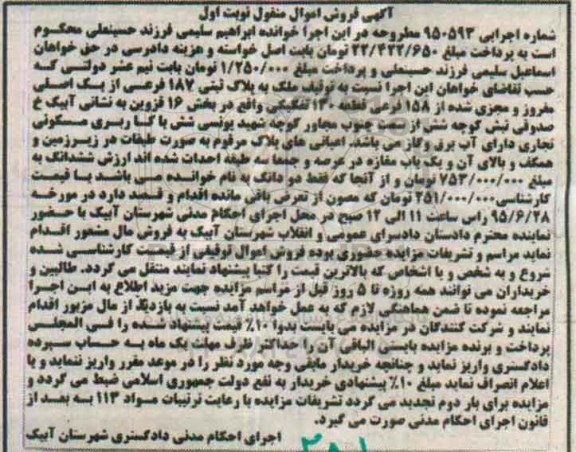 آگهی فروش اموال منقول نوبت اول
شماره اجرایی ۹۵۰۵۹۳ مطروحه در این اجرا خوانده ابراهیم سلیمی فرزند حسینعلی محکوم
است به پرداخت مبلغ ۲۲/۴۲۲/۶۵۰ تومان بابت اصل خواسته و هزینه دادرسی در حق خواهان
اسماعیل سلیمی فرزند حسینعلی و پرداخت مبلغ ۱/۲۵۰/۰۰۰ تومان بابت نیم عشر دولتی که
حسب تقاضای خواهان این اجرا نسبت به توقیف ملک به پلاک ثبتی ۱۸۷ فرعی از یک اصلی
مفروز و مجزی شده از ۱۵۸ فرعی قطعه ۱۳۰ تفکیکی واقع در بخش ۱۶ قزوین به نشانی آبیک خ
صدوقی نبش کوچه شش از سمت جنوب مجاور کوچه شهید یونسی شش با کاربری مسکونی
تجاری دارای آب برق و گاز می باشد. اعیانی های پلاک مرقوم به صورت طبقات در زیرزمین و
همکف و بالای آن و یک باب مغازه در عرصه و جمعا سه طبقه احداث شده اند ارزش ششدانگ به
مبلغ ۷۵۳/۰۰۰/۰۰۰ تومان و از آنجا که فقط دو دانگ به نام خوانده می باشد با قیمت
کارشناسی ۲۵۱/۰۰۰/۰۰۰ تومان که مصون از تعرض باقی مانده اقدام و قصد دارد در مورخه
۹۵/۶/۲۸ راس ساعت ۱۱ الی ۱۲ صبح در محل اجرای احکام مدنی شهرستان آبیک با حضور
نماینده محترم دادستان دادسرای عمومی و انقلاب شهرستان آبیک به فروش مال مشعور اقدام
نماید مراسم و تشریفات مزایده حضوری بوده فروش اموال توقیفی از قیمت کارشناسی شده
شروع و به شخص و یا اشخاص که بالاترین قیمت را کتبا پیشنهاد نمایند منتقل می گردد. طالبین و
خریداران می توانند همه روزه تا ۵ روز قبل از مراسم مزایده جهت مزید اطلاع به این اجرا
مراجعه نموده تا ضمن هماهنگی لازم که به عمل خواهد آمد نسبت به بازدید از مال مزبور اقدام
نمایند و شرکت کنندگان در مزایده می بایست بدوا ۱۰٪ قیمت پیشنهاد شده را فی المجلس
پرداخت و برنده مزایده بایستی الباقی آن را حداکثر ظرف مهلت یک ماه به حساب سپرده
دادگستری واریز نماید و چنانچه خریدار مابقی وجه مورد نظر را در موعد مقرر واریز ننماید و یا
اعلام انصراف نماید مبلغ ۱۰٪ پیشنهادی خریدار به نفع دولت جمهوری اسلامی ضبط می گردد و
مزایده برای بار دوم تجدید می گردد تشریفات مزایده با رعایت ترتیبات مواد ۱۱۳ به بعد از
قانون اجرای احکام مدنی صورت می گیرد.
اجرای احکام مدنی دادگستری شهرستان آبیک